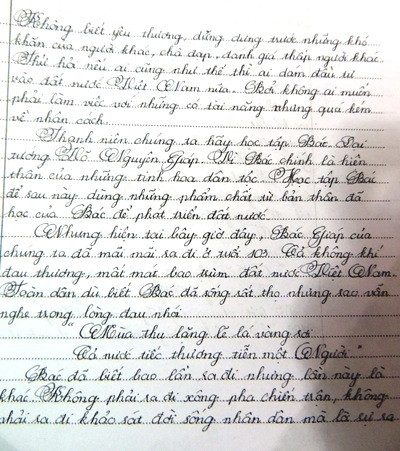 Không biết yêu thương, dửng dưng trước những khó
khăn của người khác, chà đạp, đánh giá thấp người khác.
Thử hỏi nếu ai cũng như thế thì ai dám đầu tư
vào đất nước Việt Nam nữa. Bởi không ai muốn
phải làm việc với những có tài năng nhưng quá kém
về nhân cách.
Thanh niên chúng ta hãy học tập Bác. Đại
tướng Võ Nguyên Giáp. Vì Bác chính là hiện
thân của những tinh hoa dân tộc. Học tập Bác
để sau này dùng những phẩm chất từ bản thân đã
học của Bác để phát triển đất nước.
Nhưng hiện tại bây giờ đây, Bác Giáp của
chúng ta đã mãi mãi ra đi ở tuổi 103. Cả không khí
đau thương, mất mát bao trùm đất nước Việt Nam.
Toàn dân dù biết Bác đã sống rất thọ nhưng sao vẫn
nghe trong lòng đau nhói.
"Mùa thu lặng lẽ lá vàng rơi
Cả nước tiếc thương tiễn một Người"
Bác đã biết bao lần ra đi nhưng lần này là
khác. Không phải ra đi xông pha chiến trận, không
phải ra đi khảo sát đời sống nhân dân mà là sự ra